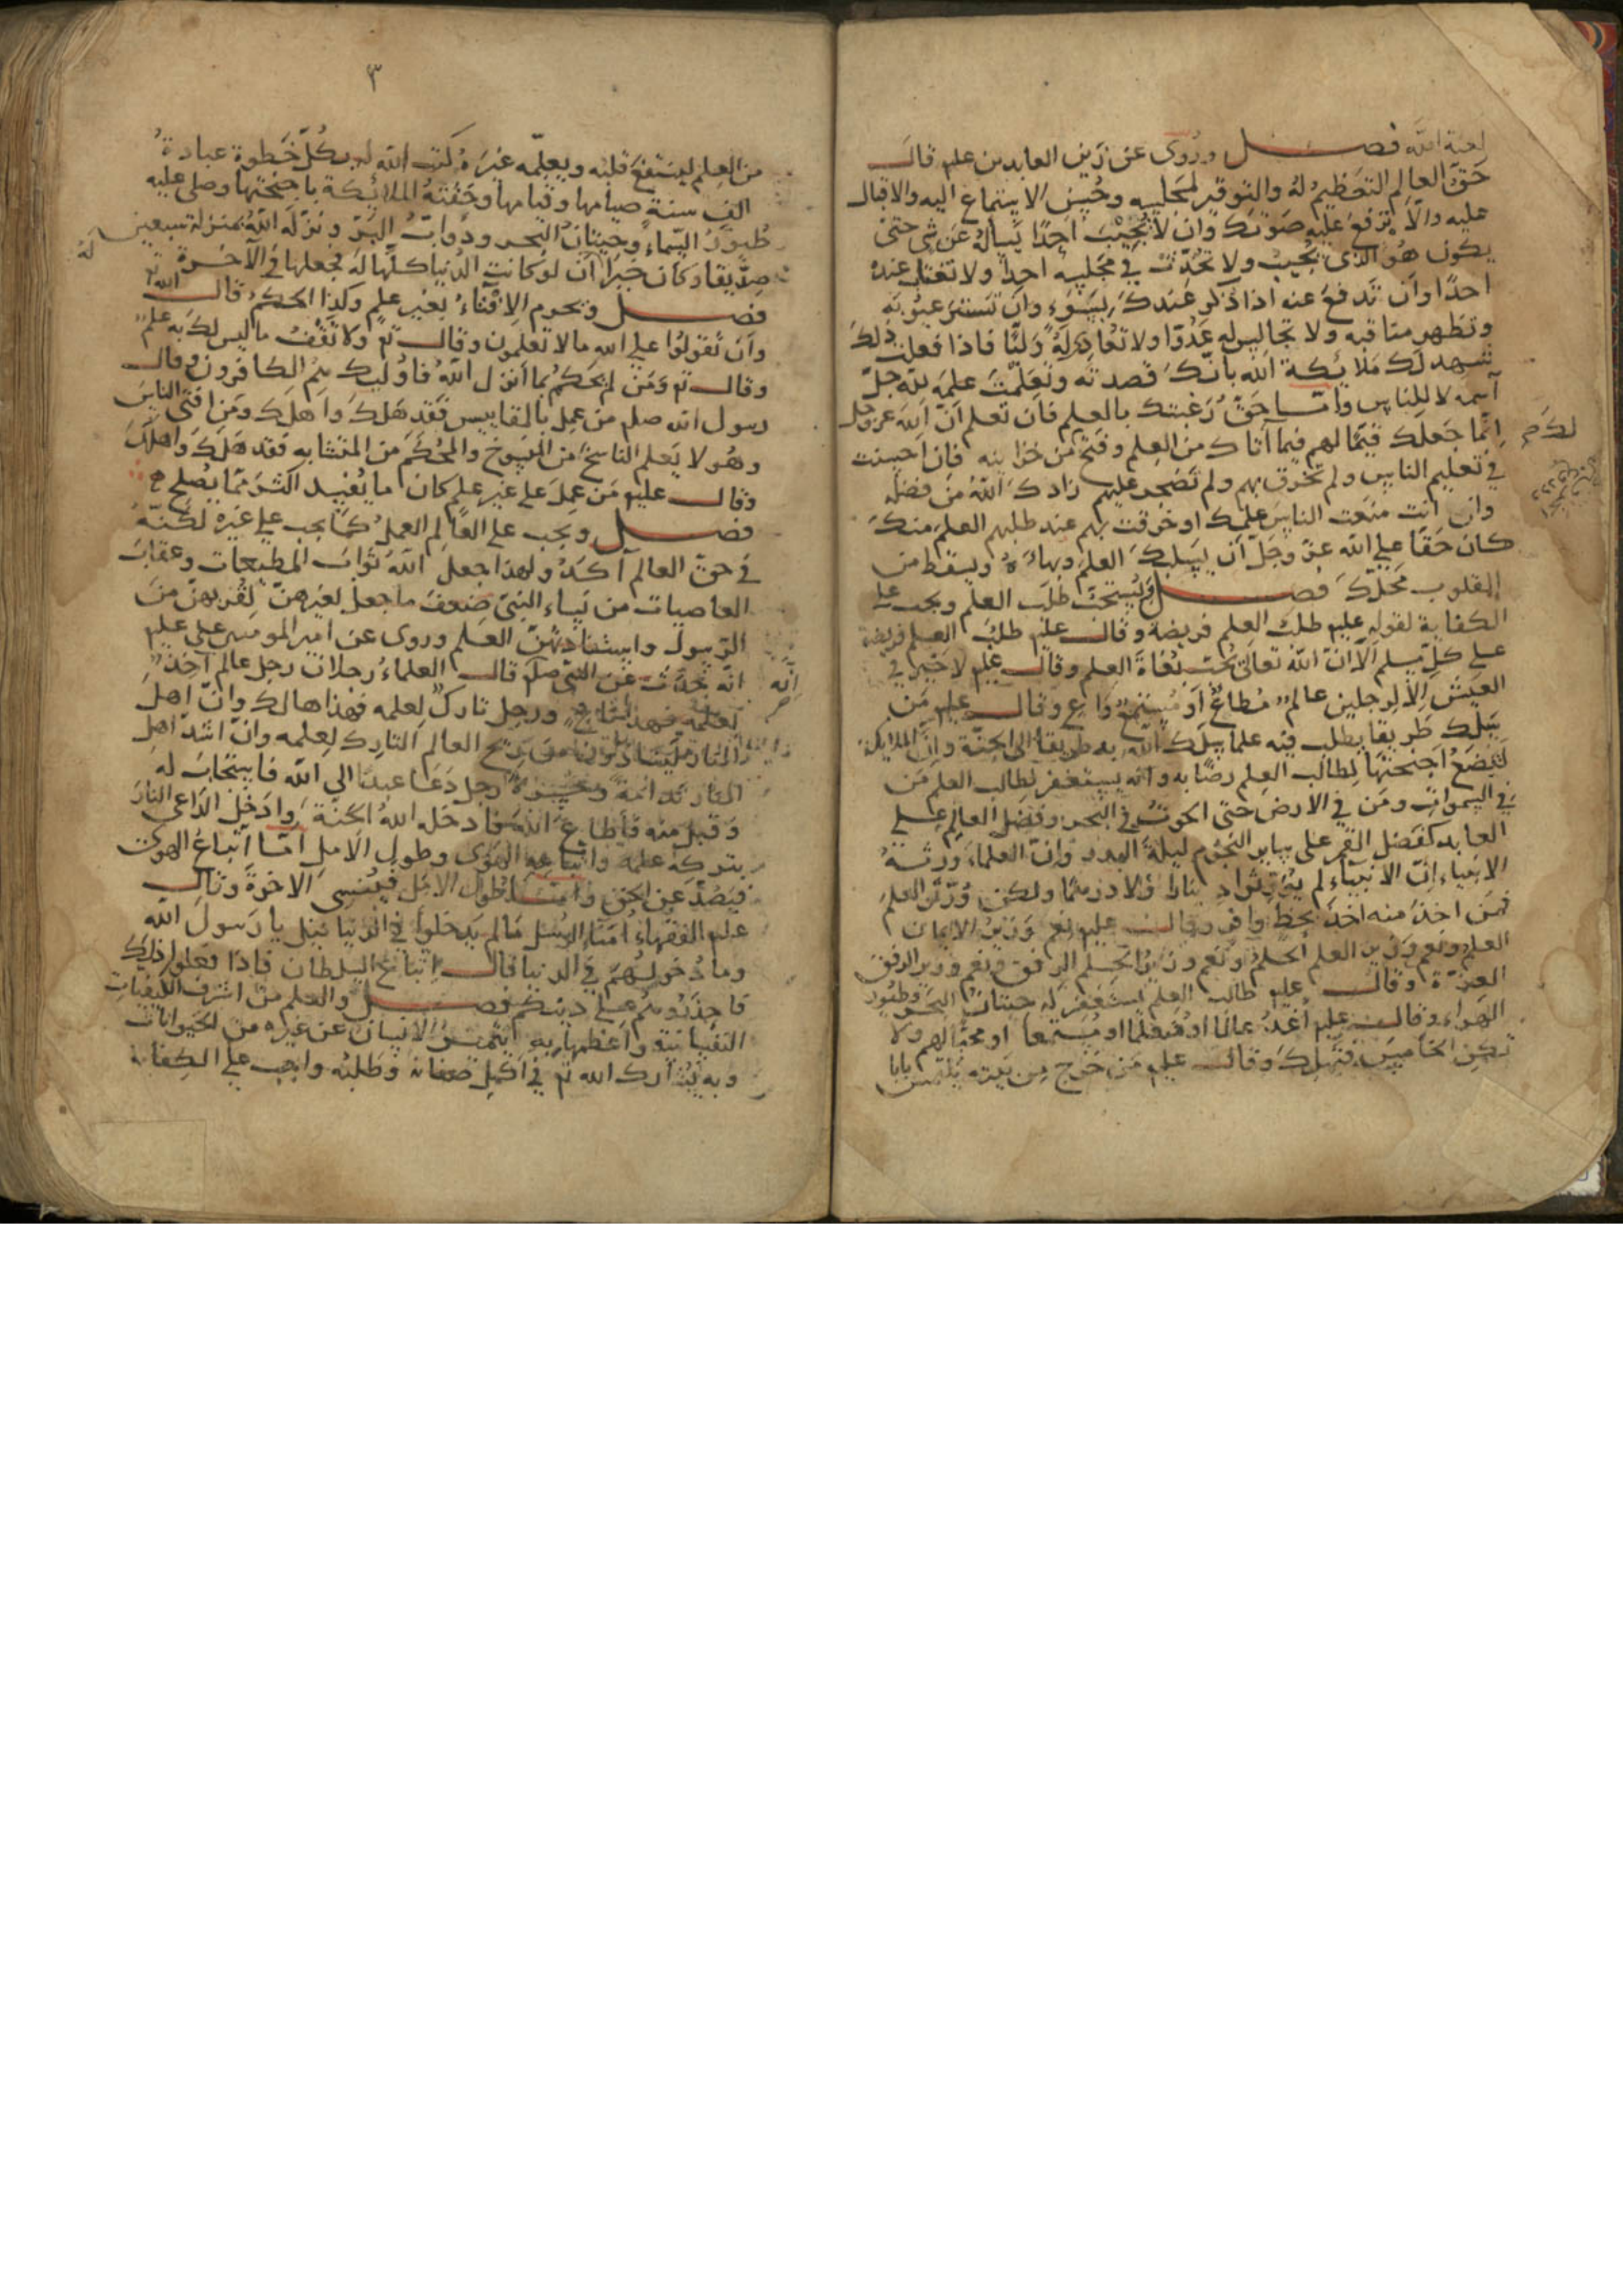 لعنة الله فصل وروى عن زين العابدين عليم قال
حق العالم التعظيم له والتوقير لمجلسه وحسن الاستماع اليه والاقبال
عليه والّا ترفع عليه صوتك وان لا تجيب احدًا يسأله عن شى حتى
يكون هو الذى يجيب ولا تحدّث في مجلسه احدا ولا تغتاب عنده
احدًا وان تدفع عنه اذا ذكر عندك بسوء وان تستر عيوبه
وتظهر مناقبه ولا تجالس له عدوّا ولا تعادى له وليّا فاذا فعلت ذلك
شهد لك ملائكة الله بانك قصدته وتعلمت علمه لله جلّ
اسمه لا للناس وامّا حق رغبتك بالعلم فان تعلم انّ الله عز وجل
انّما جعلك قيّما لهم فيما آتاك من العلم وفتح من خزاينه فان احسنت
لك صح
في تعليم الناس ولم تخرق بهم ولم تضجر عليهم زادك الله من فضله
وان انت منعت الناس علمك او خرقت بهم عند طلبهم العلم منك
كان حقا على الله عزّ وجلّ ان يسلبك العلم وبهاءه ويسقط من
القلوب محلك فصل ويستحبّ طلب العلم ويجب على
الكفاية لقوله عليم طلب العلم فريضة وقال عليم طلب العلم فريضة
على كلّ مسلم الا انّ الله تعالى يحبّ بغاة العلم وقال عليم لا خير في
العيش الا لرجلين عالم مطاع او مستمع واع وقال عليم من
يسلك طريقا يطلب فيه علما سلك الله به طريقا الى الجنّة وانّ الملايكة
لتضع اجنحتها لطالب العلم رضًا به وانه يستغفر لطالب العلم من
في السموات ومن في الارض حتى الحوت في البحر وفضل العالم على
العابد كفضل القمر على ساير النجوم ليلة البدر وانّ العلماء ورثة
الانبياء انّ الانبياء لم يورّثوا دينارا ولا درهما ولكن ورّثوا العلم
فمن اخذ منه اخذ بحظّ وافر وقال عليم نعم وزير الايمان
العلم ونعم وزير العلم الحلم ونعم وزير الحلم الرفق ونعم وزير الرفق
العبرة وقال عليم طالب العلم استغفر له حيتان البحر وطيور
الهواء وقال عليم اغد عالما او متعلما او مستمعا او محبّا لهم ولا
تكن الخامس فتهلك وقال عليم من خرج من بيته يلتمس بابا
٣
من العلم لينتفع قلبه ويعلّمه غيره كتب الله له بكلّ خطوة عبادة
الف سنة صيامها وقيامها وحفّته الملائكة باجنحتها وصلى عليه
طيور السماء وحيتان البحر ودوابّ البرّ ونزّله الله بمنزلة سبعين
صدّيقا وكان خيرا له ان لو كانت الدنيا كلّها له فجعلها في الآخرة
فصل ويحرم الافتاء بغير علم وكذا الحكم قال الله تع
وان تقولوا على الله ما لا تعلمون وقال تع ولا تقف ما ليس لك به علم
وقال تع ومن لم يحكم بما انزل الله فاولئك هم الكافرون وقال
رسول الله صلم من عمل بالمقاييس فقد هلك واهلك ومن افتى الناس
وهو لا يعلم الناسخ من المنسوخ والمحكم من المتشابه فقد هلك واهلك
وقال عليم من عمل على غير علم كان ما يفسد اكثر ممّا يصلح
فصل ويجب على العالم العمل كما يجب على غيره لكنّه
في حقّ العالم آكد ولهذا جعل الله ثواب المطيعات وعقاب
العاصيات من نساء النبى ضعف ما جعل لغيرهنّ لقربهنّ من
الرسول واستفادتهنّ العلم وروى عن امير المومنين على عليم
انّه يحدّث عن النبى صلم قال العلماء رجلان رجل عالم آخذ
بعلمه فهذا ناج ورجل تارك لعلمه فهذا هالك وانّ اهل
النار ليتاذّون من ريح العالم التارك لعلمه وانّ اشدّ اهل
النار ندامة وحسرة رجل دعا عبدا الى الله فاستجاب له
وقبل منه فاطاع الله فادخله الله الجنّة وادخل الداعى النار
بتركه علمه واتباعه الهوى وطول الامل امّا اتباع الهوى
فيصدّ عن الحق وامّا طول الامل فينسى الاخرة وقال
عليم الفقهاء امناء الرسل ما لم يدخلوا في الدنيا قيل يا رسول الله
وما دخولهم في الدنيا قال اتباع السلطان فاذا فعلوا ذلك
فاحذروهم على دينكم فصل والعلم من اشرف الكيفيات
النفسانية واعظمها وبه يتميّز الانسان عن غيره من الحيوانات
وبه يشارك الله تع في اكمل صفاته وطلبه واجب على الكفاية